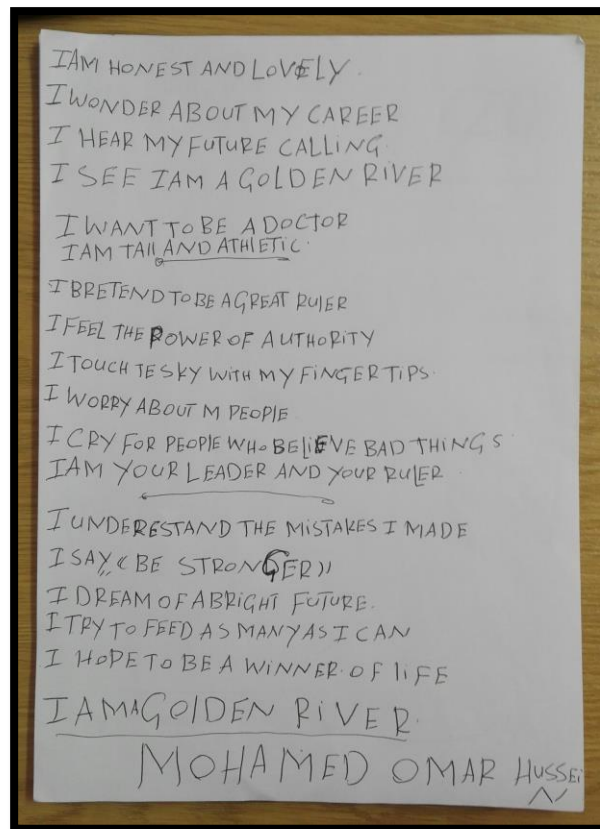 I AM HONEST AND LOVELY.
I WONDER ABOUT MY CAREER
I HEAR MY FUTURE CALLING.
I SEE I AM A GOLDEN RIVER
I WANT TO BE A DOCTOR
I AM TAll AND ATHlETIC.
I BRETEND TO BE A GREAT RUlER
I FEEL THE POWER OF AUTHORITY
I TOUCH TE SKY WITH MY FINGER TIPS.
I WORRY ABOUT M PEOPlE
I CRY FOR PEOPLE WHO BEliEVE BAD THINGS
I AM YOUR LEADER AND YOUR RULER.
I UNDERESTAND THE MISTAKES I MADE
I SAY, « BE STRONGER))
I DREAM OF A BRIGHT FUTURE.
I TRY TO FEED AS MANY AS I CAN
I HOPE TO BE A WINNER. OF lIFE
I AM A GOlDEN RIVER.
MOHAMED OMAR HUSSEi
N